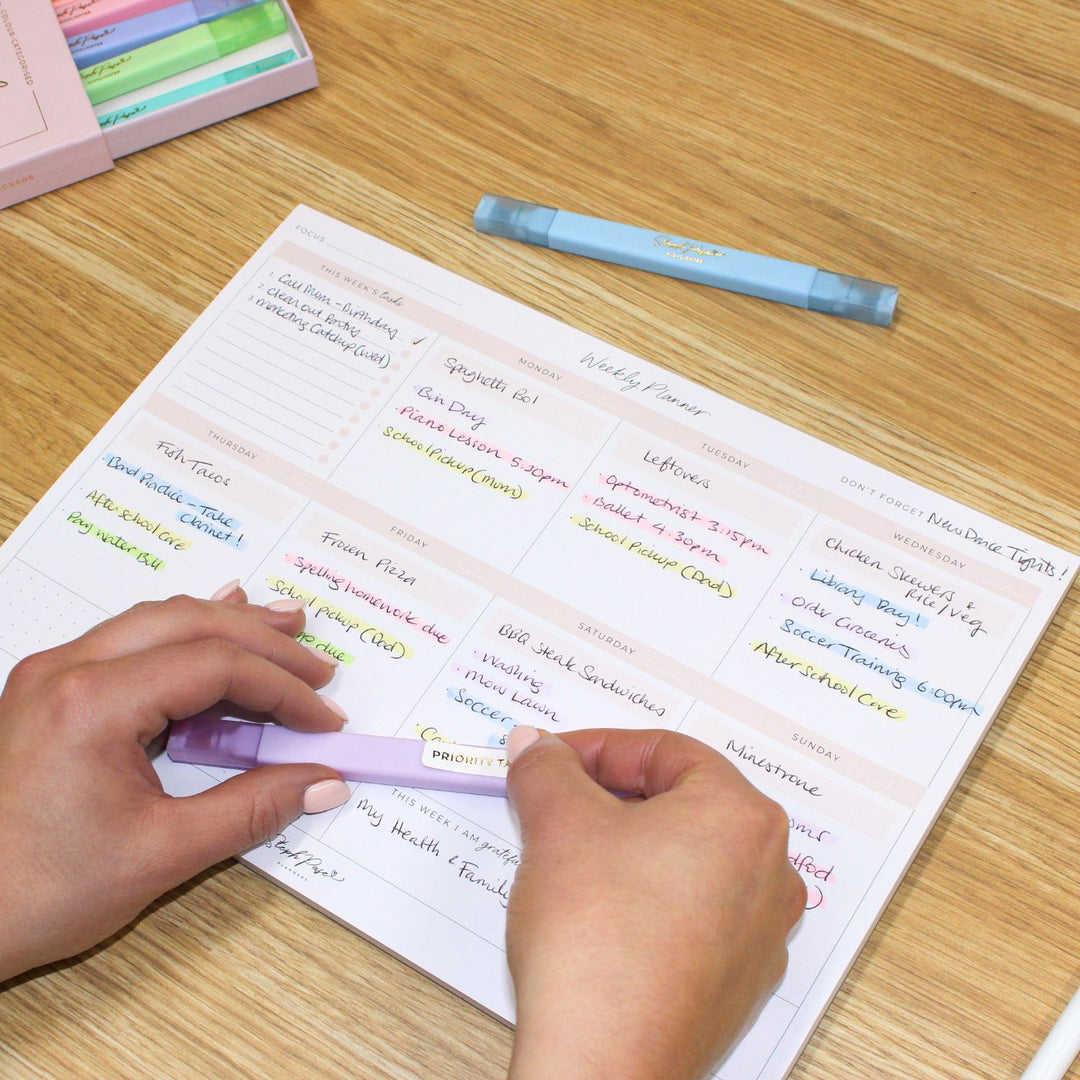 COLOUR-CATEGORISED
FOCUS
THIS WEEK'S tasks
1. Call Mum - Birthday ✓
2. Clean out Pantry
3. Marketing Catchup (wed)
Weekly Planner
DON'T FORGET New Dance Tights!
MONDAY
Spaghetti Bol
· Bin Day
· Piano Lesson 5:30pm
· School Pickup (Mum)
TUESDAY
Leftovers
· Optometrist 3:15pm
· Ballet 4.30pm
· School Pickup (Dad)
WEDNESDAY
Chicken Skewers &
Rice/Veg
· Library Day!
· Order Groceries
· Soccer Training 6:00pm
· After School Care
THURSDAY
Fish Tacos
· Band Practice - Take
Clarinet!
· After school care
· Pay Water Bill
FRIDAY
Frozen Pizza
· Spelling homework due
· School pickup (Dad)
due
SATURDAY
BBQ Steak Sandwiches
· Washing
· Mow Lawn
· Soccer
SUNDAY
Minestrone
THIS WEEK I AM grateful
My Health & Family
Steph Pase
PLANNERS
PRIORITY TA
Steph Pase
HIGHLIGHTER